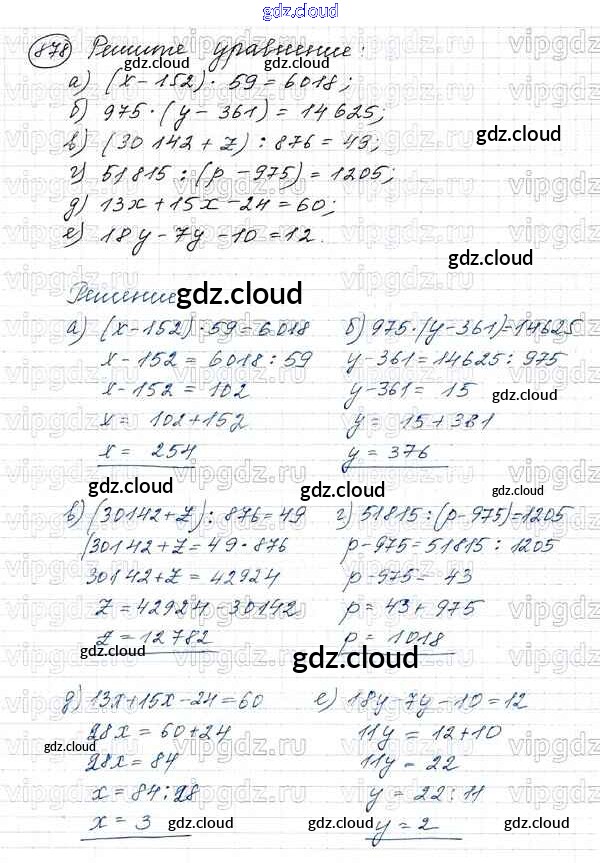 gdz.cloud
878 Решите уравнение:
gdz.cloud gdz.cloud
а) (x-152) · 59 = 6018;
б) 975 · (y-361) = 14625;
в) (30142+z) : 876 = 49;
gdz.cloud
г) 51815 : (p-975) = 1205;
д) 13x+15x-24 = 60;
е) 18y-7y-10 = 12.
gdz.cloud
Решение
gdz.cloud
а) (x-152)·59=6018
x-152 = 6018 : 59
x-152 = 102
x = 102+152
x = 254
б) 975·(y-361)=14625
y-361=14625 : 975
y-361 = 15
gdz.cloud
y = 15+381
y = 376
gdz.cloud
gdz.cloud
в) (30142+z) : 876=49
(30142+z = 49·876
30142+z = 42924
z = 42924-30142
z = 12782
г) 51815:(p-975)=1205
p-975=51815 : 1205
p-975= 43
p = 43+975
p = 1018
gdz.cloud
gdz.cloud
gdz.cloud
д) 13x+15x-24=60
28x = 60+24
28x = 84
x = 84:28
x = 3
gdz.cloud
е) 18y-7y-10=12
11y = 12+10
11y = 22
y = 22:11
y = 2
gdz.cloud
gdz.cloud
gdz.cloud
gdz.cloud
vipgdz.ru